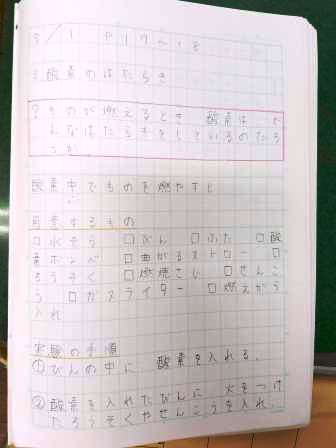 5/1 P17~18
3 酸素のはたらき
？ものが燃えるとき 酸素は ど
んなはたらきをしているのだろ
うか。
酸素中でものを燃やすと
用意するもの
□水そう □びん □ふた □酸
素ボンベ □曲がるストロー □
ろうそく □燃焼さじ □せんこ
う □ガスライター □燃えがら
入れ
実験の手順
①びんの中に 酸素を入れる。
②酸素を入れたびんに 火をつけ
たろうそくやせんこうを入れ、